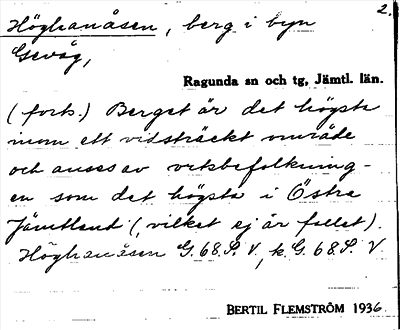 2.
Höghanåsen, berg i byn
Gevåg,
Ragunda sn och tg, Jämtl. län.
(forts.) Berget är det högsta
inom ett vidsträckt område
och anses av ortsbefolkning-
en som det högsta i Östra
Jämtland (, vilket ej är fallet).
Höghanåsen G. 68. S. V., k. G. 68. S. V.
BERTIL FLEMSTRÖM 1936